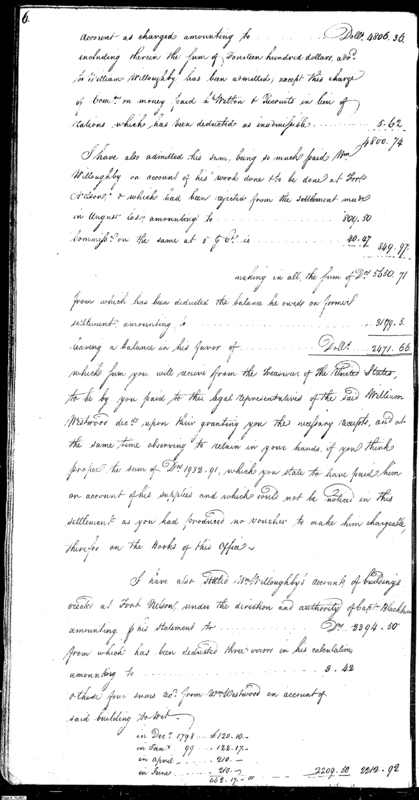 6.
account as charged amounting to ........ Dolls. 4806.36.
including therein the sum of Fourteen hundred dollars, adv.d
to William Willoughby has been admitted, except this charge
of Com.n on money paid Welton & Recruits in lieu of
rations which has been deducted as inadmissible ........ 5.62
4800.74
I have also admitted this sum, being so much paid Wm
Willoughby on account of his work done & to be done at Fort
Nelson, & which had been rejected from the settlement made
in August last, amounting to ........ 809.50
Commiss.n on the same at 5 P C.t is ........ 40.47 849.97.
making in all, the sum of Drs 5650.71
from which has been deducted the balance he owed on former
settlement amounting to ........ 3179.5.
leaving a balance in his favor of ........ Dolls. 2471.66.
which sum you will receive from the Treasurer of the United States,
to be by you paid to the legal representatives of the said William
Westwood decd. upon their granting you the necessary receipts, and at
the same time observing to retain in your hands, if you think
proper, the sum of Drs 1932.91, which you state to have paid him
on account of his supplies and which could not be noticed in this
settlement as you had produced no voucher to make him chargeable,
therefor on the Books of this Office.
I have also settled Wm. Willoughby's accounts of buildings
erected at Fort Nelson, under the direction and authority of Capt. Blackburn
amounting p his statement to ........ Drs. 3394.50
from which has been deducted three errors in his calculations
amounting to ........ 3.42
& these four sums recd. from Wm Westwood on account of
said building to wit.
in Decr. 1798 £120.10.–
in Jany. 99 .. 122.17.–
in april ........ 210.–
in June ........ 210.–
662.17.–
2209.50 2212.92